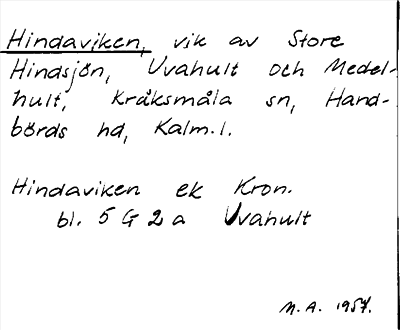 Hindaviken, vik av Store
Hindsjön, Uvahult och Medel-
hult, Kråksmåla sn, Hand-
börds hd, Kalm. l.
Hindaviken ek Kron.
bl. 5 G 2 a Uvahult
M. A. 1957.